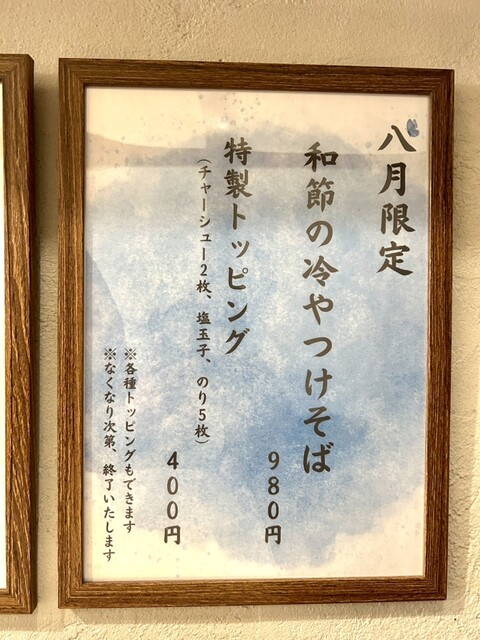 八月限定
和節の冷やつけそば
980円
特製トッピング
（チャーシュー2枚、塩玉子、のり5枚）
400円
※各種トッピングもできます
※なくなり次第、終了いたします